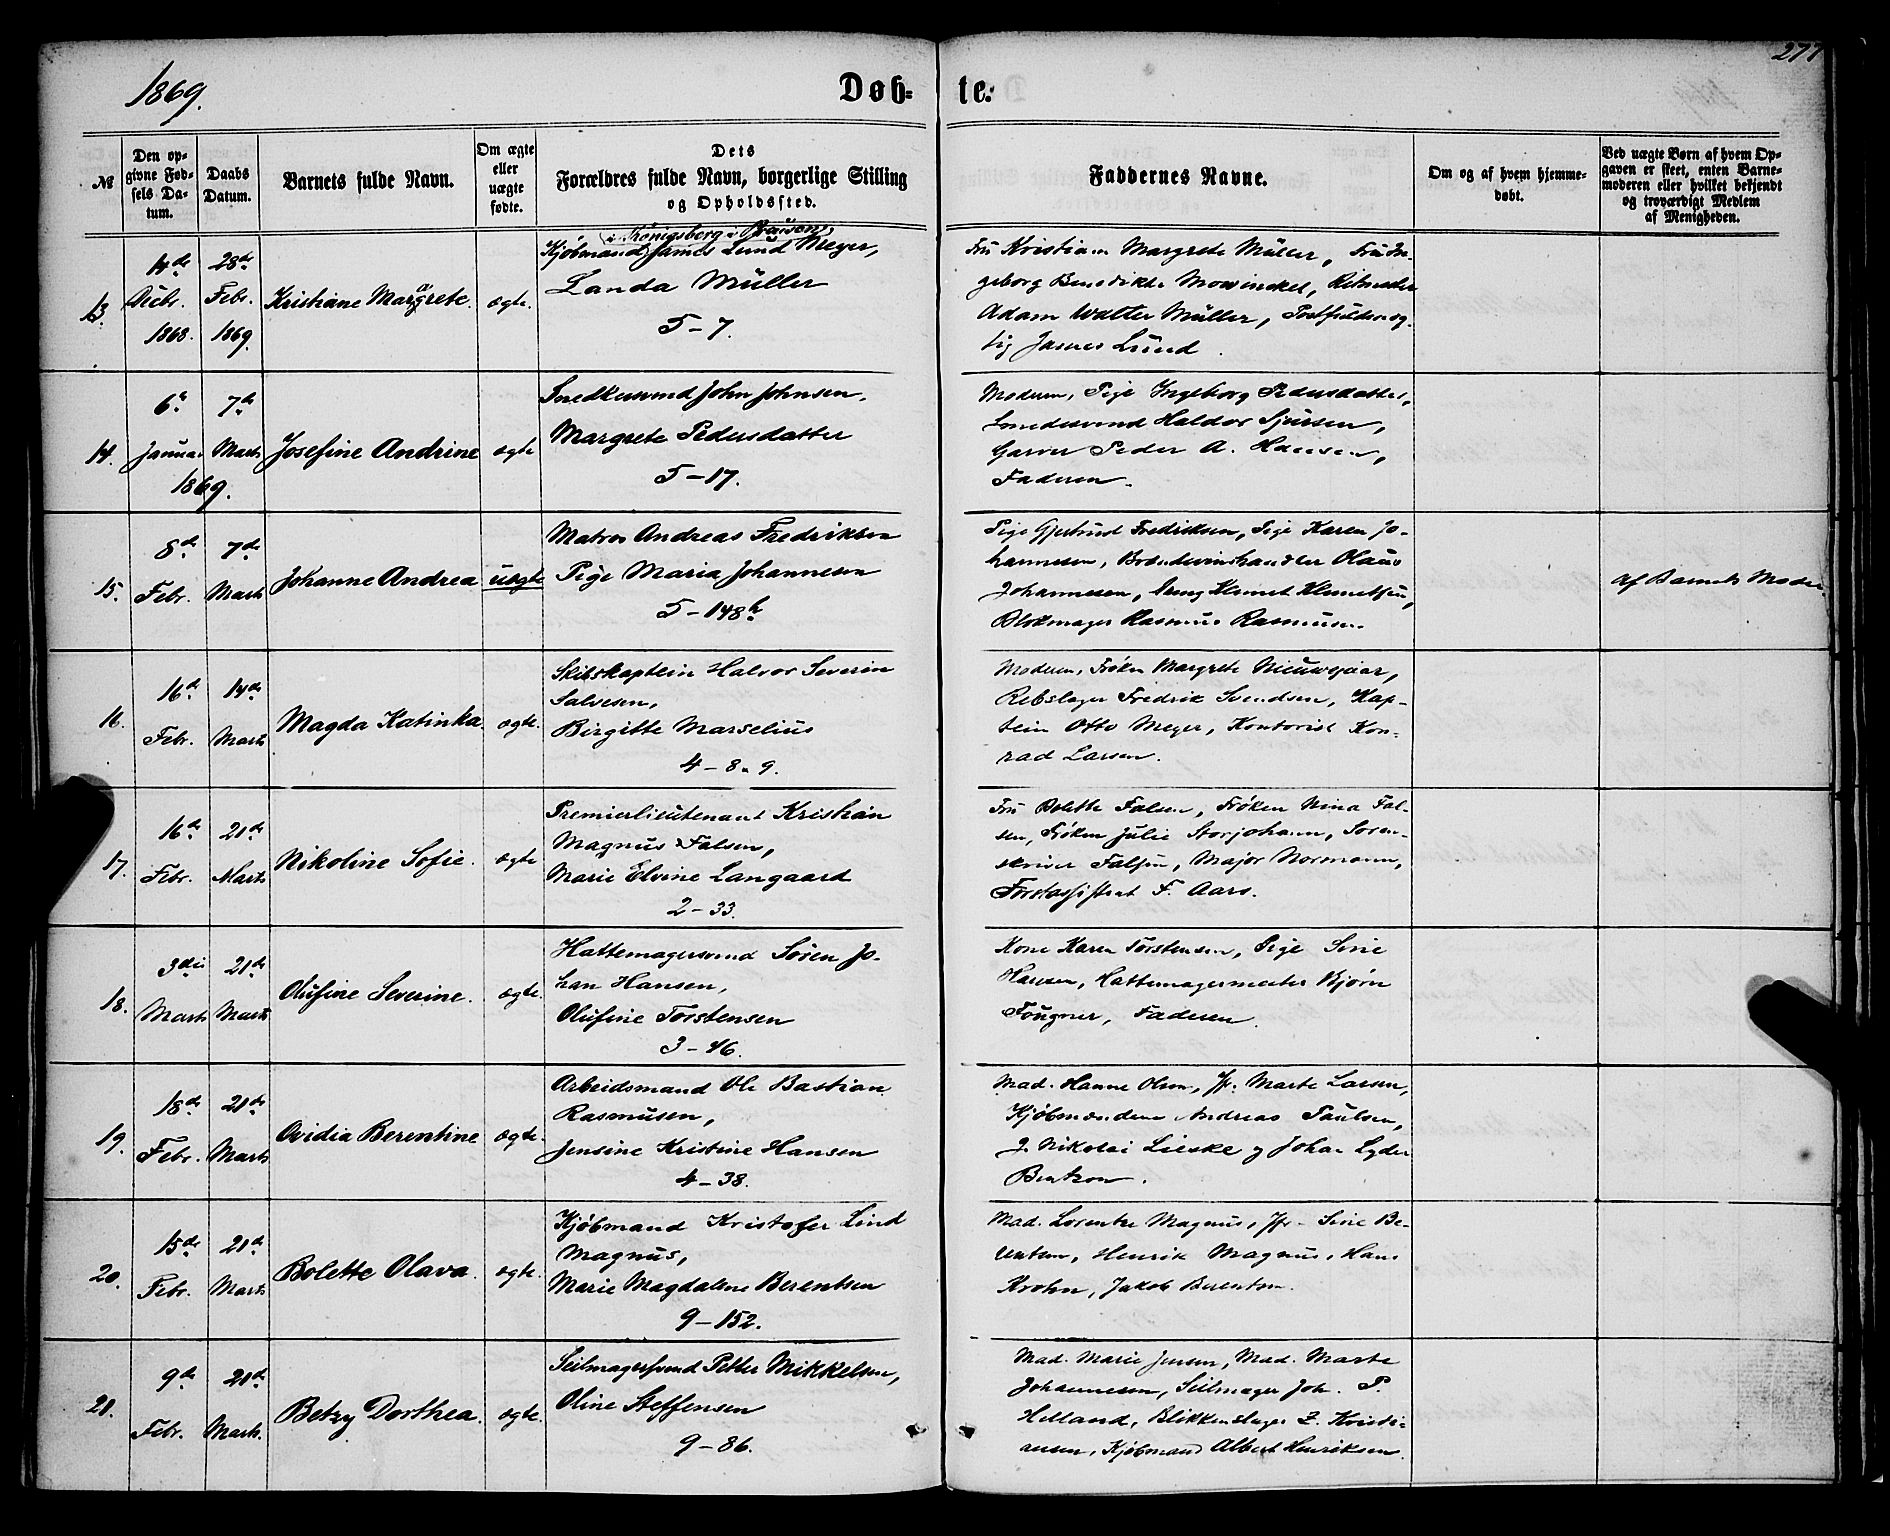 277
1869.
Døb- te.
№
Den op-
givne Fød-
sels Da-
tum.
Daabs
Datum.
Barnets fulde Navn.
Om ægte
eller
uægte
fødte.
Dets
Forældres fulde Navn, borgerlige Stilling
og Opholdssted.
Faddernes Navne.
Om og af hvem hjemme-
døbt.
Ved uægte Børn af hvem Op-
gaven er skeet, enten Barne-
moderen eller hvilket bekjendt
og troværdigt Medlem
af Menigheden.
13.
14de
Decbr.
1868.
28de
Febr.
1869.
Kristiane Margrete.
ægte.
i Königsberg i Preussen,
Kjøbmand James Lund Meyer,
Landa Müller
5-7.
Fru Kristiane Margrete Müller, Fru In-
geborg Benedikte Mowinckel, Ritmester
Adam Walter Müller, Postfuldmæg-
tig James Lund.
14.
6te
Januar
1869.
7de
Marts
Josefine Andrine
ægte
Snedkersvend John Johnsen,
Margrete Pedersdatter
5-17.
Moderen, Pige Ingeborg Pedersdatter,
Smedesvend Haldor Sjursen,
Garver Peder A. Hansen,
Faderen.
15.
8de
Febr.
7de
Marts
Johanne Andrea
uægte
Matros Andreas Fredriksen
Pige Maria Johannesen
5-148b
Pige Gjertrud Fredriksen, Pige Karen Jo-
hannesen, Brændevinshandler Olaus
Johannesen, Klemet Klemetsen,
Blokmager Rasmus Rasmusen.
Af Barnets Moder.
16.
16de
Febr.
14de
Marts
Magda Katinka.
ægte.
Skibskaptein Halvor Severin
Salvesen,
Birgitte Marselius
4-8.9.
Moderen, Frøken Margrete Nieuwejaar,
Rebslager Fredrik Svendsen, Kap-
tein Otto Meyer, Kontorist Kon-
rad Larsen.
17.
16de
Febr.
21de
Marts
Nikoline Sofie.
ægte
Premierlieutenant Kristian
Magnus Falsen,
Marie Elvine Langaard
2-33.
Fru Bolette Falsen, Frøken Nina Fal-
sen, Frøken Julie Storjohann, Soren-
skriver Falsen, Major Normann,
Forstassistent F. Aars.
18.
3die
Marts
21de
Marts
Olufine Severine.
ægte.
Hattemagersvend Søren Jo-
han Hansen,
Olufine Torstensen
3-46.
Kone Karen Torstensen, Pige Sine
Hansen, Hattemagermester Bjørn
Fougner, Faderen.
19.
18de
Febr.
21de
Marts
Ovidia Berentine
ægte.
Arbeidsmand Ole Bastian
Rasmusen,
Jensine Kristine Hansen
4-38.
Mad. Hanne Olsen, Jfr. Marte Larsen,
Kjøbmændene Andreas Paulsen,
J. Nikolai Lieske og Johan Lyder
Bentzon.
20.
15de
Febr.
21de
Marts
Bolette Olava.
ægte.
Kjøbmand Kristofer Lind
Magnus,
Marie Magdalene Berentsen
9-152.
Mad. Lorentze Magnus, Jfr. Sine Be-
rentsen, Henrik Magnus, Hans
Krohn, Jakob Berentsen.
21.
9de
Febr.
21de
Marts.
Betzy Dorthea.
ægte.
Seilmagersvend Petter Mikkelsen,
Oline Steffensen
9-86.
Mad. Marie Jensen, Mad. Marte
Johannesen, Seilmager Joh. P.
Helland, Blikkenslager Z. Kristi-
ansen, Kjøbmand Albert Henriksen.